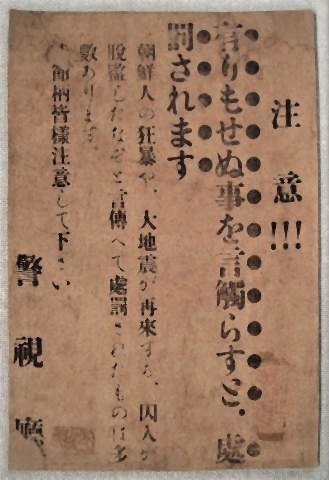 注意!!!
有りもせぬ事を言觸らすと、處
罰されます
朝鮮人の狂暴や、大地震が再來する、囚人が
脫監したなぞと言傳へて處罰されたものは多
數あります。
時節柄皆樣注意して下さい
警視廳